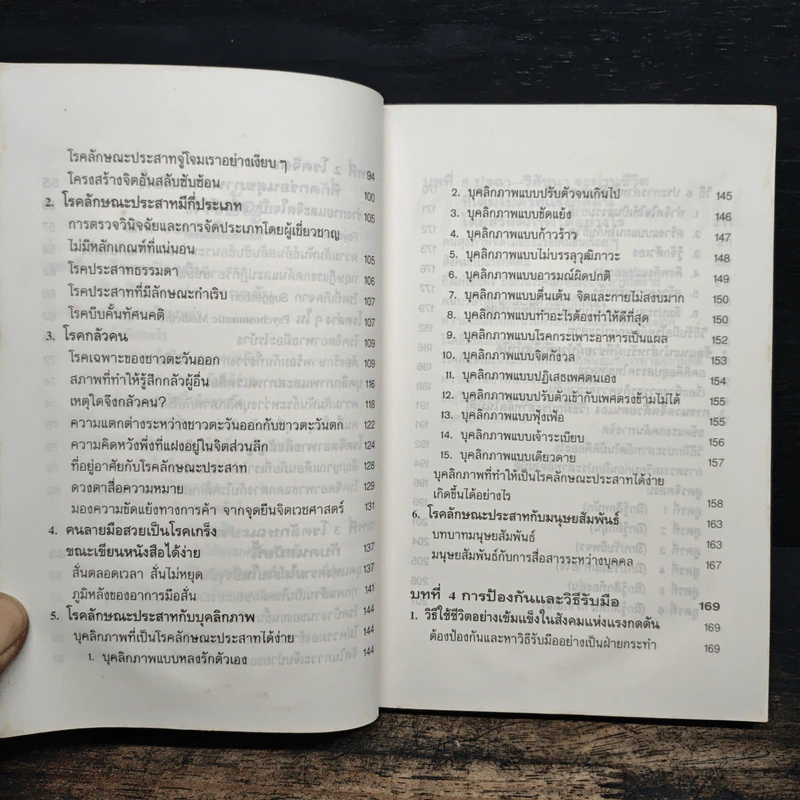 โรคลักษณะประสาทจู่โจมเราอย่างเงียบ ๆ 94
โครงสร้างจิตอันสลับซับซ้อน 100
2. โรคลักษณะประสาทมีกี่ประเภท 105
การตรวจวินิจฉัยและการจัดประเภทโดยผู้เชี่ยวชาญ
ไม่มีหลักเกณฑ์ที่แน่นอน 105
โรคประสาทธรรมดา 106
โรคประสาทที่มีลักษณะกำเริบ 107
โรคบีบคั้นทัศนคติ 107
3. โรคกลัวคน 109
โรคเฉพาะของชาวตะวันออก 109
สภาพที่ทำให้รู้สึกกลัวผู้อื่น 116
เหตุใดจึงกลัวคน? 118
ความแตกต่างระหว่างชาวตะวันออกกับชาวตะวันตก 122
ความคิดหวังพึ่งที่แฝงอยู่ในจิตส่วนลึก 124
ที่อยู่อาศัยกับโรคลักษณะประสาท 128
ดวงตาสื่อความหมาย 129
มองความขัดแย้งทางการค้า จากจุดยืนจิตเวชศาสตร์ 131
4. คนลายมือสวยเป็นโรคเกร็ง
ขณะเขียนหนังสือได้ง่าย 137
สั่นตลอดเวลา สั่นไม่หยุด 137
ภูมิหลังของอาการมือสั่น 141
5. โรคลักษณะประสาทกับบุคลิกภาพ 144
บุคลิกภาพที่เป็นโรคลักษณะประสาทได้ง่าย 144
1. บุคลิกภาพแบบหลงรักตัวเอง 144
2. บุคลิกภาพแบบปรับตัวจนเกินไป 145
3. บุคลิกภาพแบบขัดแย้ง 146
4. บุคลิกภาพแบบก้าวร้าว 147
5. บุคลิกภาพแบบไม่บรรลุวุฒิภาวะ 148
6. บุคลิกภาพแบบอารมณ์ผิดปกติ 149
7. บุคลิกภาพแบบตื่นเต้น จิตและกายไม่สงบมาก 150
8. บุคลิกภาพแบบทำอะไรต้องทำให้ดีที่สุด 150
9. บุคลิกภาพแบบโรคกระเพาะอาหารเป็นแผล 152
10. บุคลิกภาพแบบจิตกังวล 153
11. บุคลิกภาพแบบปฏิเสธเพศตนเอง 154
12. บุคลิกภาพแบบปรับตัวเข้ากับเพศตรงข้ามไม่ได้ 155
13. บุคลิกภาพแบบฟุ้งเฟ้อ 155
14. บุคลิกภาพแบบเจ้าระเบียบ 156
15. บุคลิกภาพแบบเดียวดาย 157
บุคลิกภาพที่ทำให้เป็นโรคลักษณะประสาทได้ง่าย
เกิดขึ้นได้อย่างไร 158
6. โรคลักษณะประสาทกับมนุษยสัมพันธ์ 163
บทบาทมนุษยสัมพันธ์ 163
มนุษยสัมพันธ์กับการสื่อสารระหว่างบุคคล 167
บทที่ 4 การป้องกันและวิธีรับมือ 169
1. วิธีใช้ชีวิตอย่างเข้มแข็งในสังคมแห่งแรงกดดัน 169
ต้องป้องกันและหาวิธีรับมืออย่างเป็นฝ่ายกระทำ 169